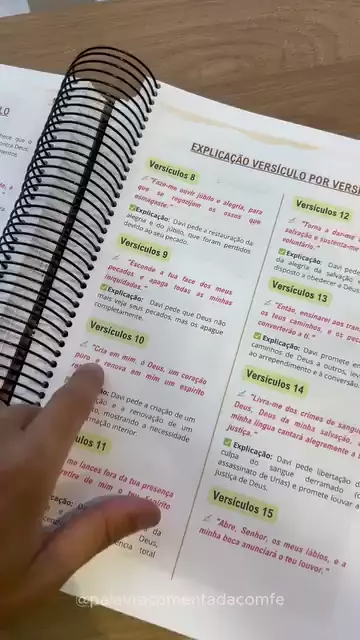 EXPLICAÇÃO VERSÍCULO POR VERSÍ
Versículos 8
"Faze-me ouvir júbilo e alegria, para
que se regozijem os ossos que
esmagaste."
Explicação: Davi pede a restauração da
alegria e do júbilo, que foram perdidos
devido ao seu pecado.
Versículos 9
"Esconde a tua face dos meus
pecados e apaga todas as minhas
iniquidades."
Explicação: Davi pede que Deus não
mais veja seus pecados, mas os apague
completamente.
Versículos 10
"Cria em mim, ó Deus, um coração
puro e renova em mim um espírito
Davi pede a criação de um
e a renovação de um
mostrando a necessidade
interior.
11
me lances fora da tua presença
retire de mim o teu Espírito
Deus,
total
Versículos 12
"Torna a dar-me
salvação e sustenta-me
voluntário."
Explicação: Davi pede
da alegria da salvação e
disposto a obedecer a Deus.
Versículos 13
"Então, ensinarei aos
teus caminhos, e os
converterão a ti."
Explicação: Davi promete
caminhos de Deus a outros,
ao arrependimento e à conversão.
Versículos 14
"Livra-me dos crimes de sangue
Deus, Deus da minha salvação,
minha língua cantará alegremente a
justiça."
Explicação: Davi pede libertação d
culpa do sangue derramado
assassinato de Urias) e promete louvar a
justiça de Deus.
Versículos 15
"Abre, Senhor, os meus lábios, e a
minha boca anunciará o teu louvor."
@palavracomentadacomfe